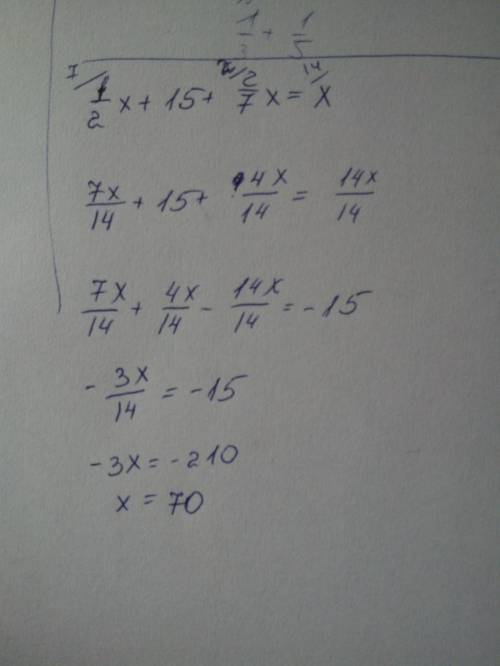 1/3 + 1/5
7/ 1/2 x + 15 + 2/ 2/7 x = 14/ x
7x/14 + 15 + 4x/14 = 14x/14
7x/14 + 4x/14 - 14x/14 = -15
- 3x/14 = -15
-3x = -210
x = 70